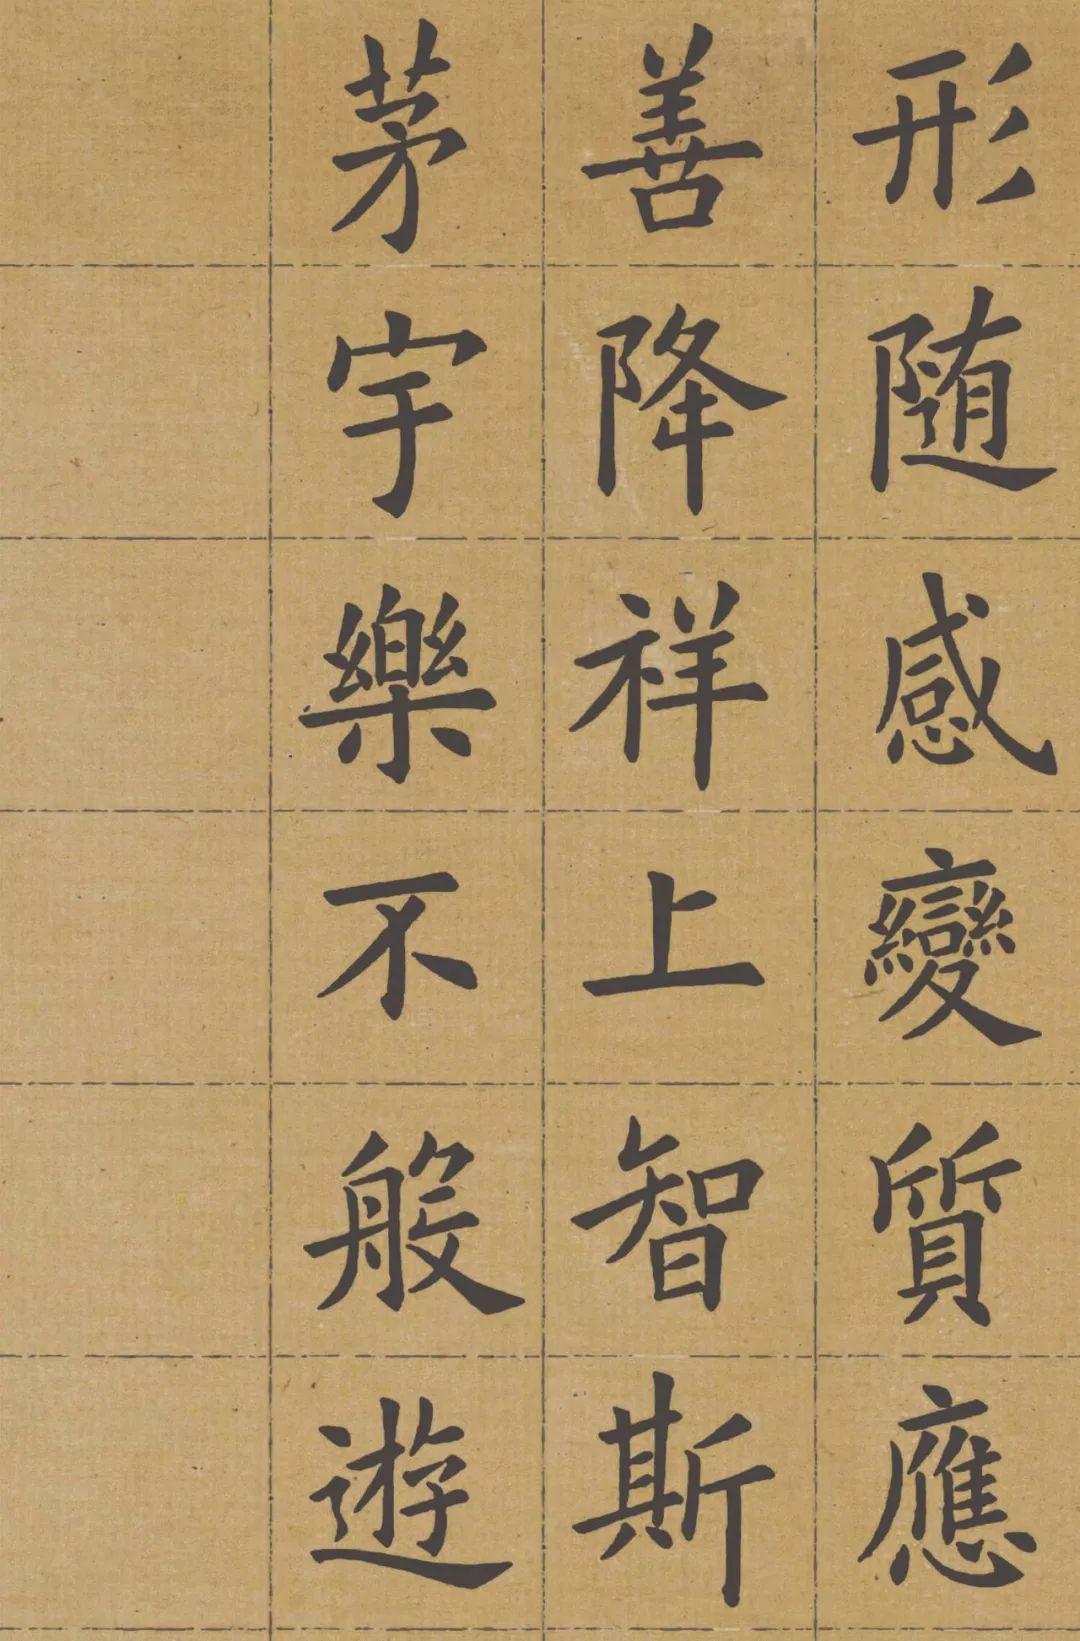 形随感變質應
善降祥上智斯
茅宇樂不般遊